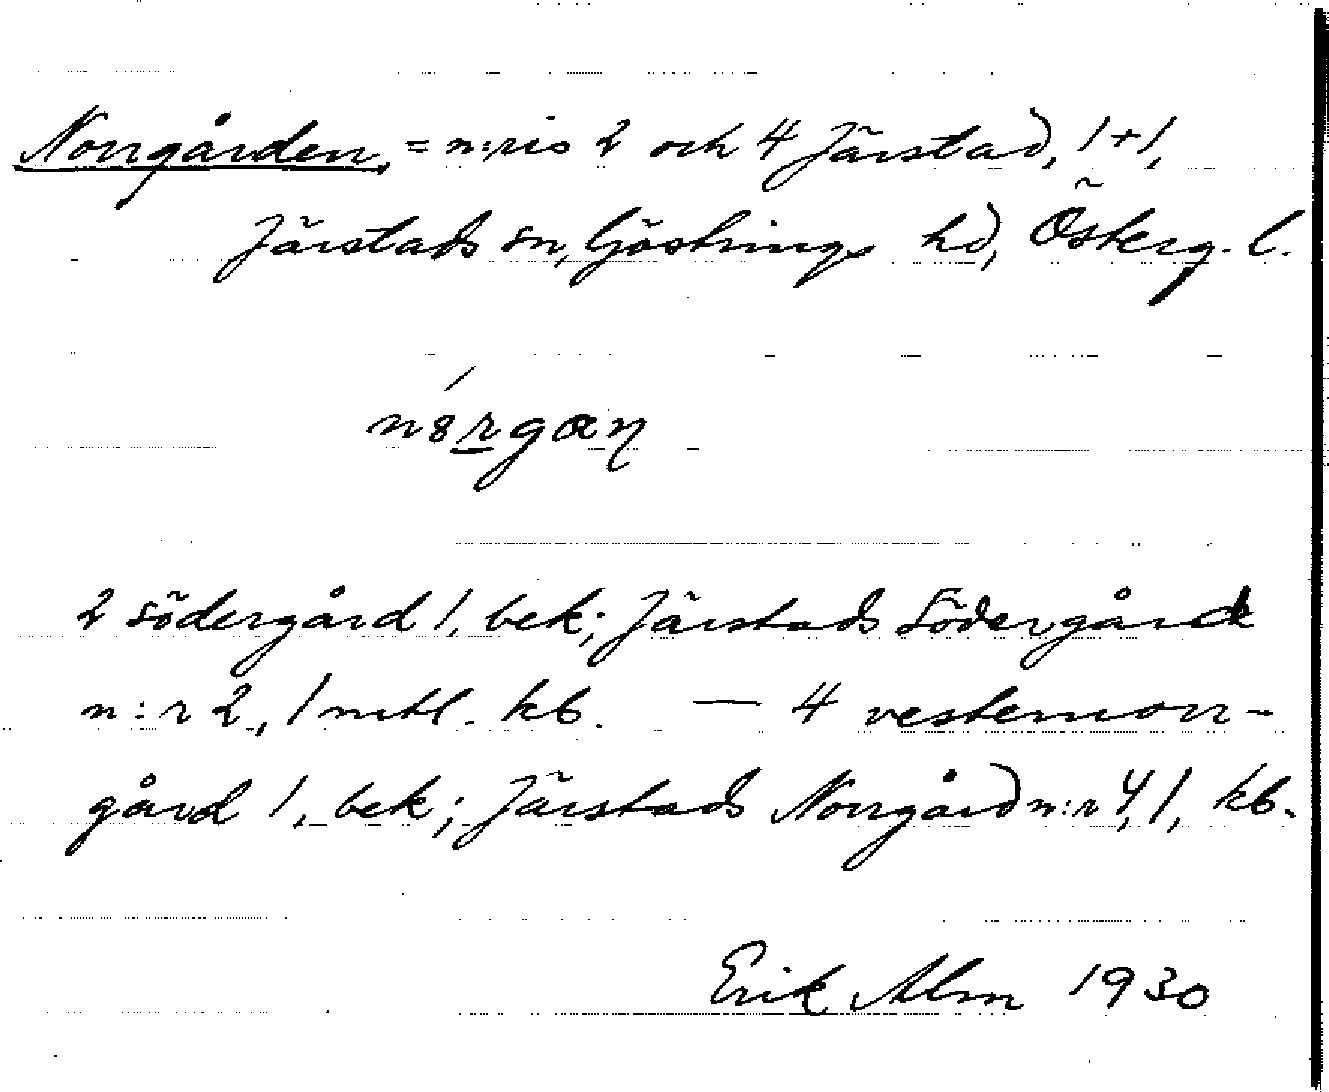 Norrgården, = n:ris 2 och 4 Järstad, 1+1,
Järstads sn, Göstrings hd, Österg. l.
2 södergård 1, bek; Järstads Södergård
n:r 2, 1 mtl. kb. — 4 vesternorr-
gård 1, bek; Järstads Norrgård n:r 4, 1, kb.
Erik Alm 1930